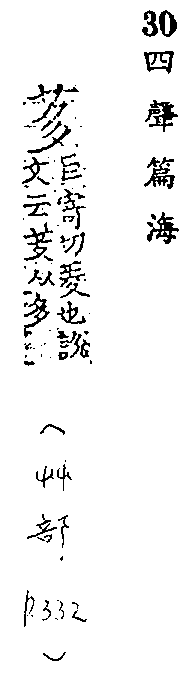 30 四聲篇海
茤
巨寄切菱也說
文云芰从多
（艸部. P.332）